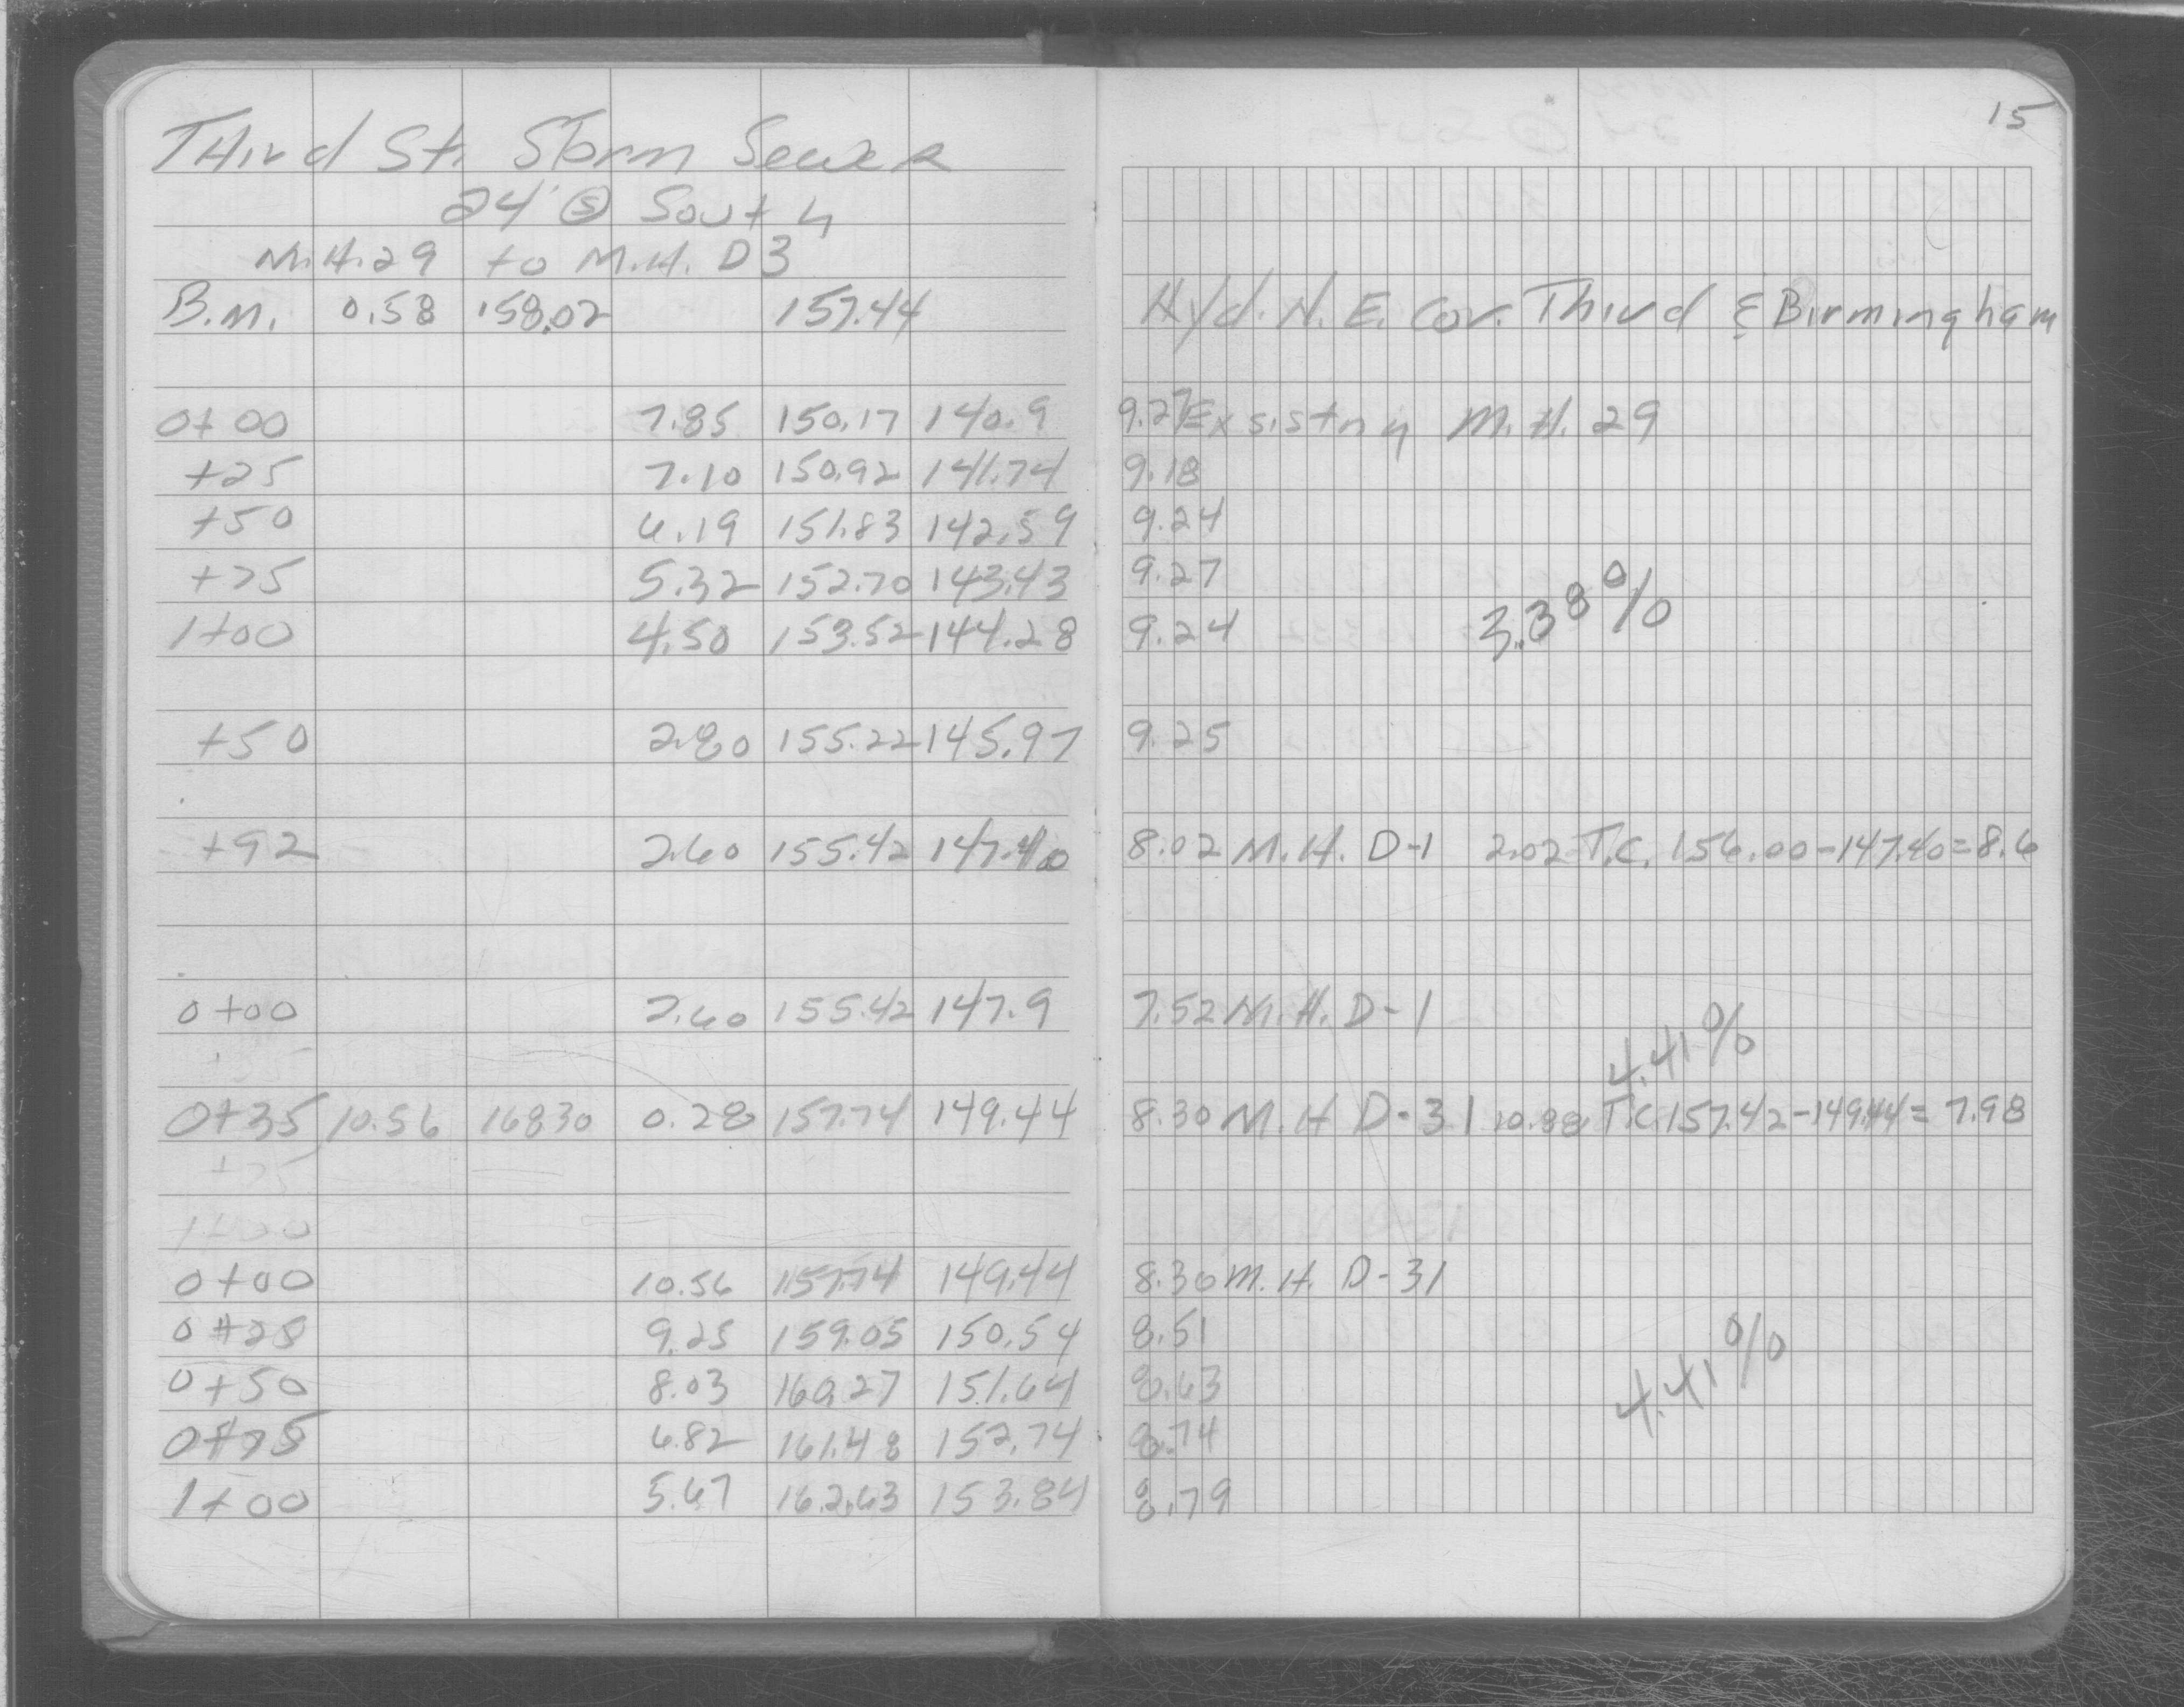 15
THird St. Storm Sewer
24' Ⓢ South
M.H. 29 to M.H. D3
B.M. 0.58 158.02 157.44 Hyd. N.E. Cor. Third & Birmingham
0+00 7.85 150.17 140.9 9.27 Exsisting M.H. 29
+25 7.10 150.92 141.74 9.18
+50 6.19 151.83 142.59 9.24
+75 5.32 152.70 143.43 9.27
3.38%
1+00 4.50 153.52 144.28 9.24
+50 2.80 155.22 145.97 9.25
+92 2.60 155.42 147.40 8.02 M.H. D-1 2.02 T.C. 156.00-147.40=8.6
0+00 2.60 155.42 147.9 7.52 M.H. D-1
4.41%
0+35 10.56 16830 0.28 157.74 149.44 8.30 M.H D-31 10.88 T.C. 157.42-149.44=7.98
+75
1+00
0+00 10.56 157.74 149.44 8.30 M.H. D-31
0+25 9.25 159.05 150.54 8.51
0+50 8.03 160.27 151.64 8.63
4.41%
0+75 6.82 161.48 152.74 8.74
1+00 5.67 162.63 153.84 8.79